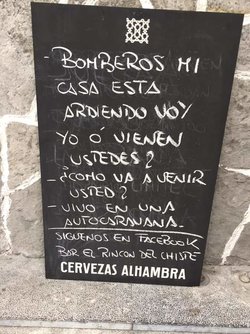 - BOMBEROS MI
CASA ESTA
ARDIENDO VOY
YO Ó VIENEN
USTEDES?
- ¿COMO VA A VENIR
USTED?
- VIVO EN UNA
AUTOCARAVANA.
SIGUENOS EN FACEBOOK
BAR EL RINCON DEL CHISTE
CERVEZAS ALHAMBRA